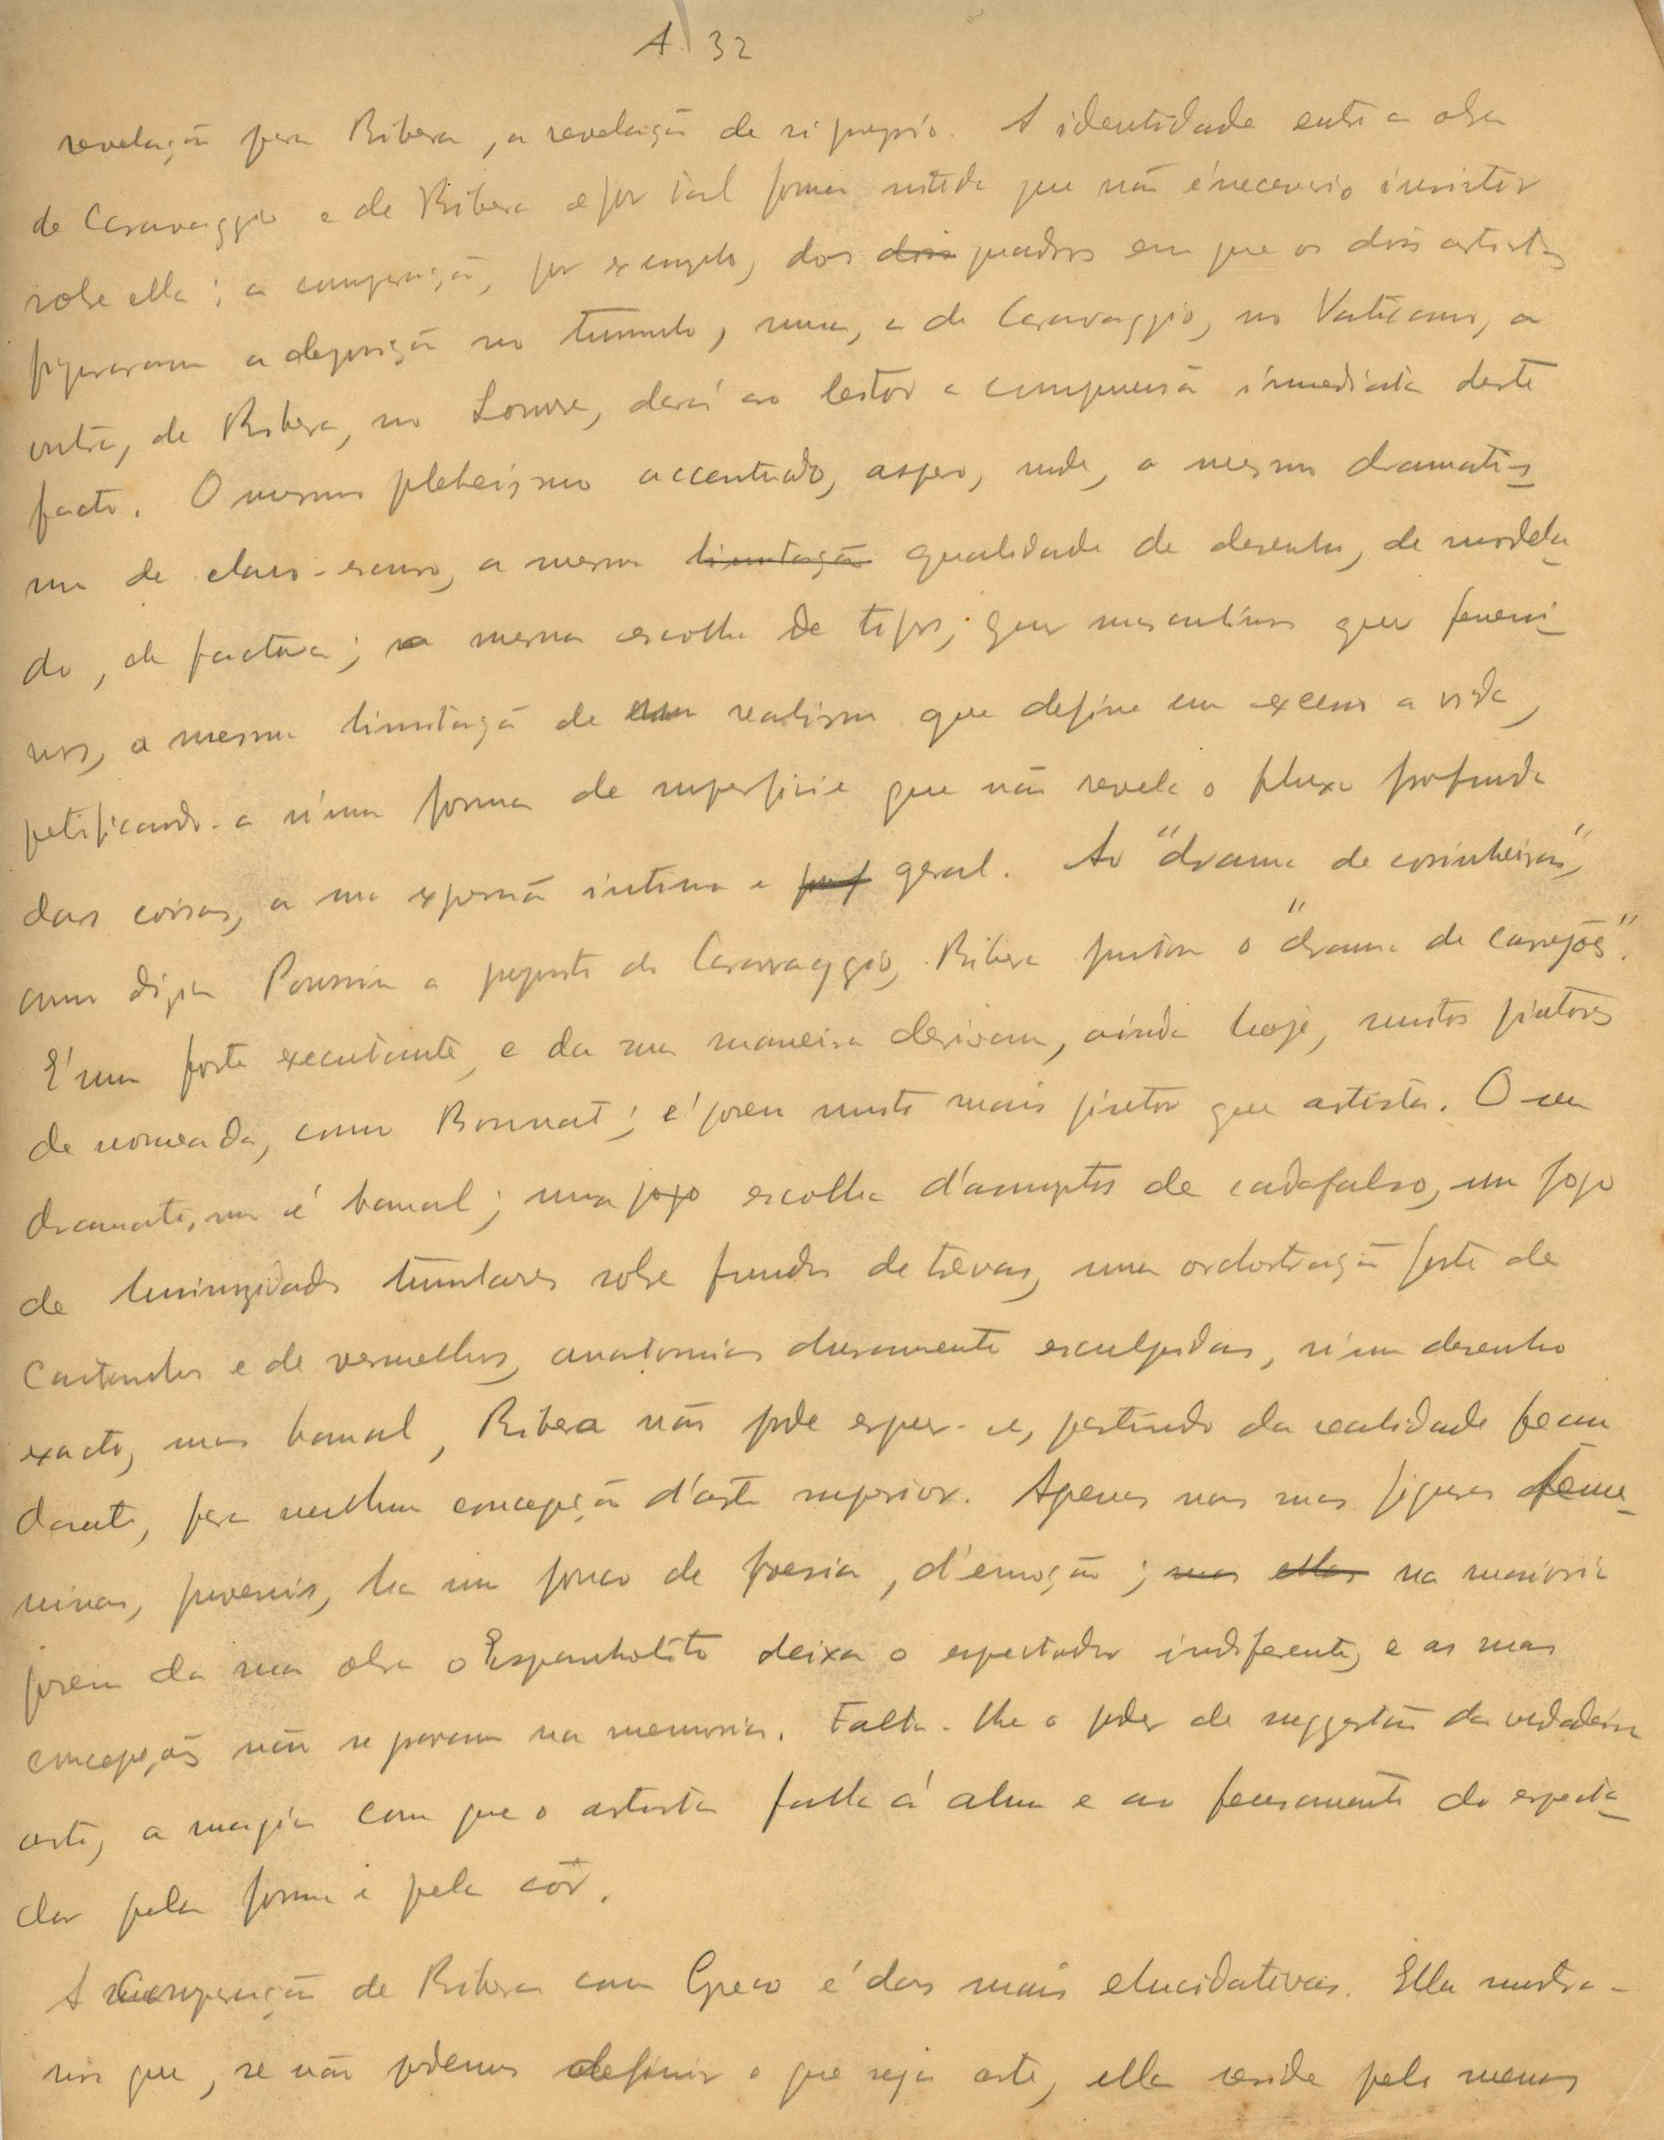 A 32
revelação para Ribera, a revelação de si proprio. A identidade entre a obra
de Caravaggio e de Ribera é por tal forma nitida que não é necessario insistir
sobre ella; a comparação, por exemplo, dos dois quadros em que os dois artistas
figuraram a deposição no tumulo, uma, a de Caravaggio, no Vaticano, a
outra, de Ribera, no Louvre, dará ao leitor a compreensão immediata deste
facto. O mesmo plebeismo accentuado, aspero, rude, o mesmo dramatis-
mo de claro-escuro, a mesma limitação qualidade de desenho, de modela-
do, de factura; a mesma escolha de typos, quer masculinos quer femeni-
nos, a mesma limitação de realismo que define em excesso a vida,
petrificando-a n'uma forma de superficie que não revela o fluxo profundo
das coisas, a sua expressão intima e geral. Ao "drama de cosinheiros",
como dizia Poussin a proposito de Caravaggio, Ribera juntou o "drama de carrejões".
É um forte executante, e da sua maneira derivam, ainda hoje, muitos pintores
de nomeada, como Bonnat; é porem muito mais pintor que artista. O seu
dramatismo é banal; uma jogo escolha d'assumptos de cadafalso, um jogo
de luminosidades tumulares sobre fundos de trevas, uma orchestração forte de
castanhos e de vermelhos, anatomias duramente esculpidas, n'um desenho
exacto, mas banal, Ribera não pode erguer-se, partindo da realidade fecun
dante, para nenhuma concepção d'arte superior. Apenas nas suas figuras feme-
ninas, juvenis, ha um pouco de poesia, d'emoção; mas ellas na maioria
porem da sua obra o Espanholito deixa o espectador indiferente, e as suas
concepções não se gravam na memoria. Falta-lhe o poder de suggestão da verdadeira
arte, a magia com que o artista falla á alma e ao pensamento do especta-
dor pela forma e pela côr.
A comparação de Ribera com Greco é das mais elucidativas. Ella mostra-
nos que, se não podemos definir o que seja arte, ella reside pelo menos